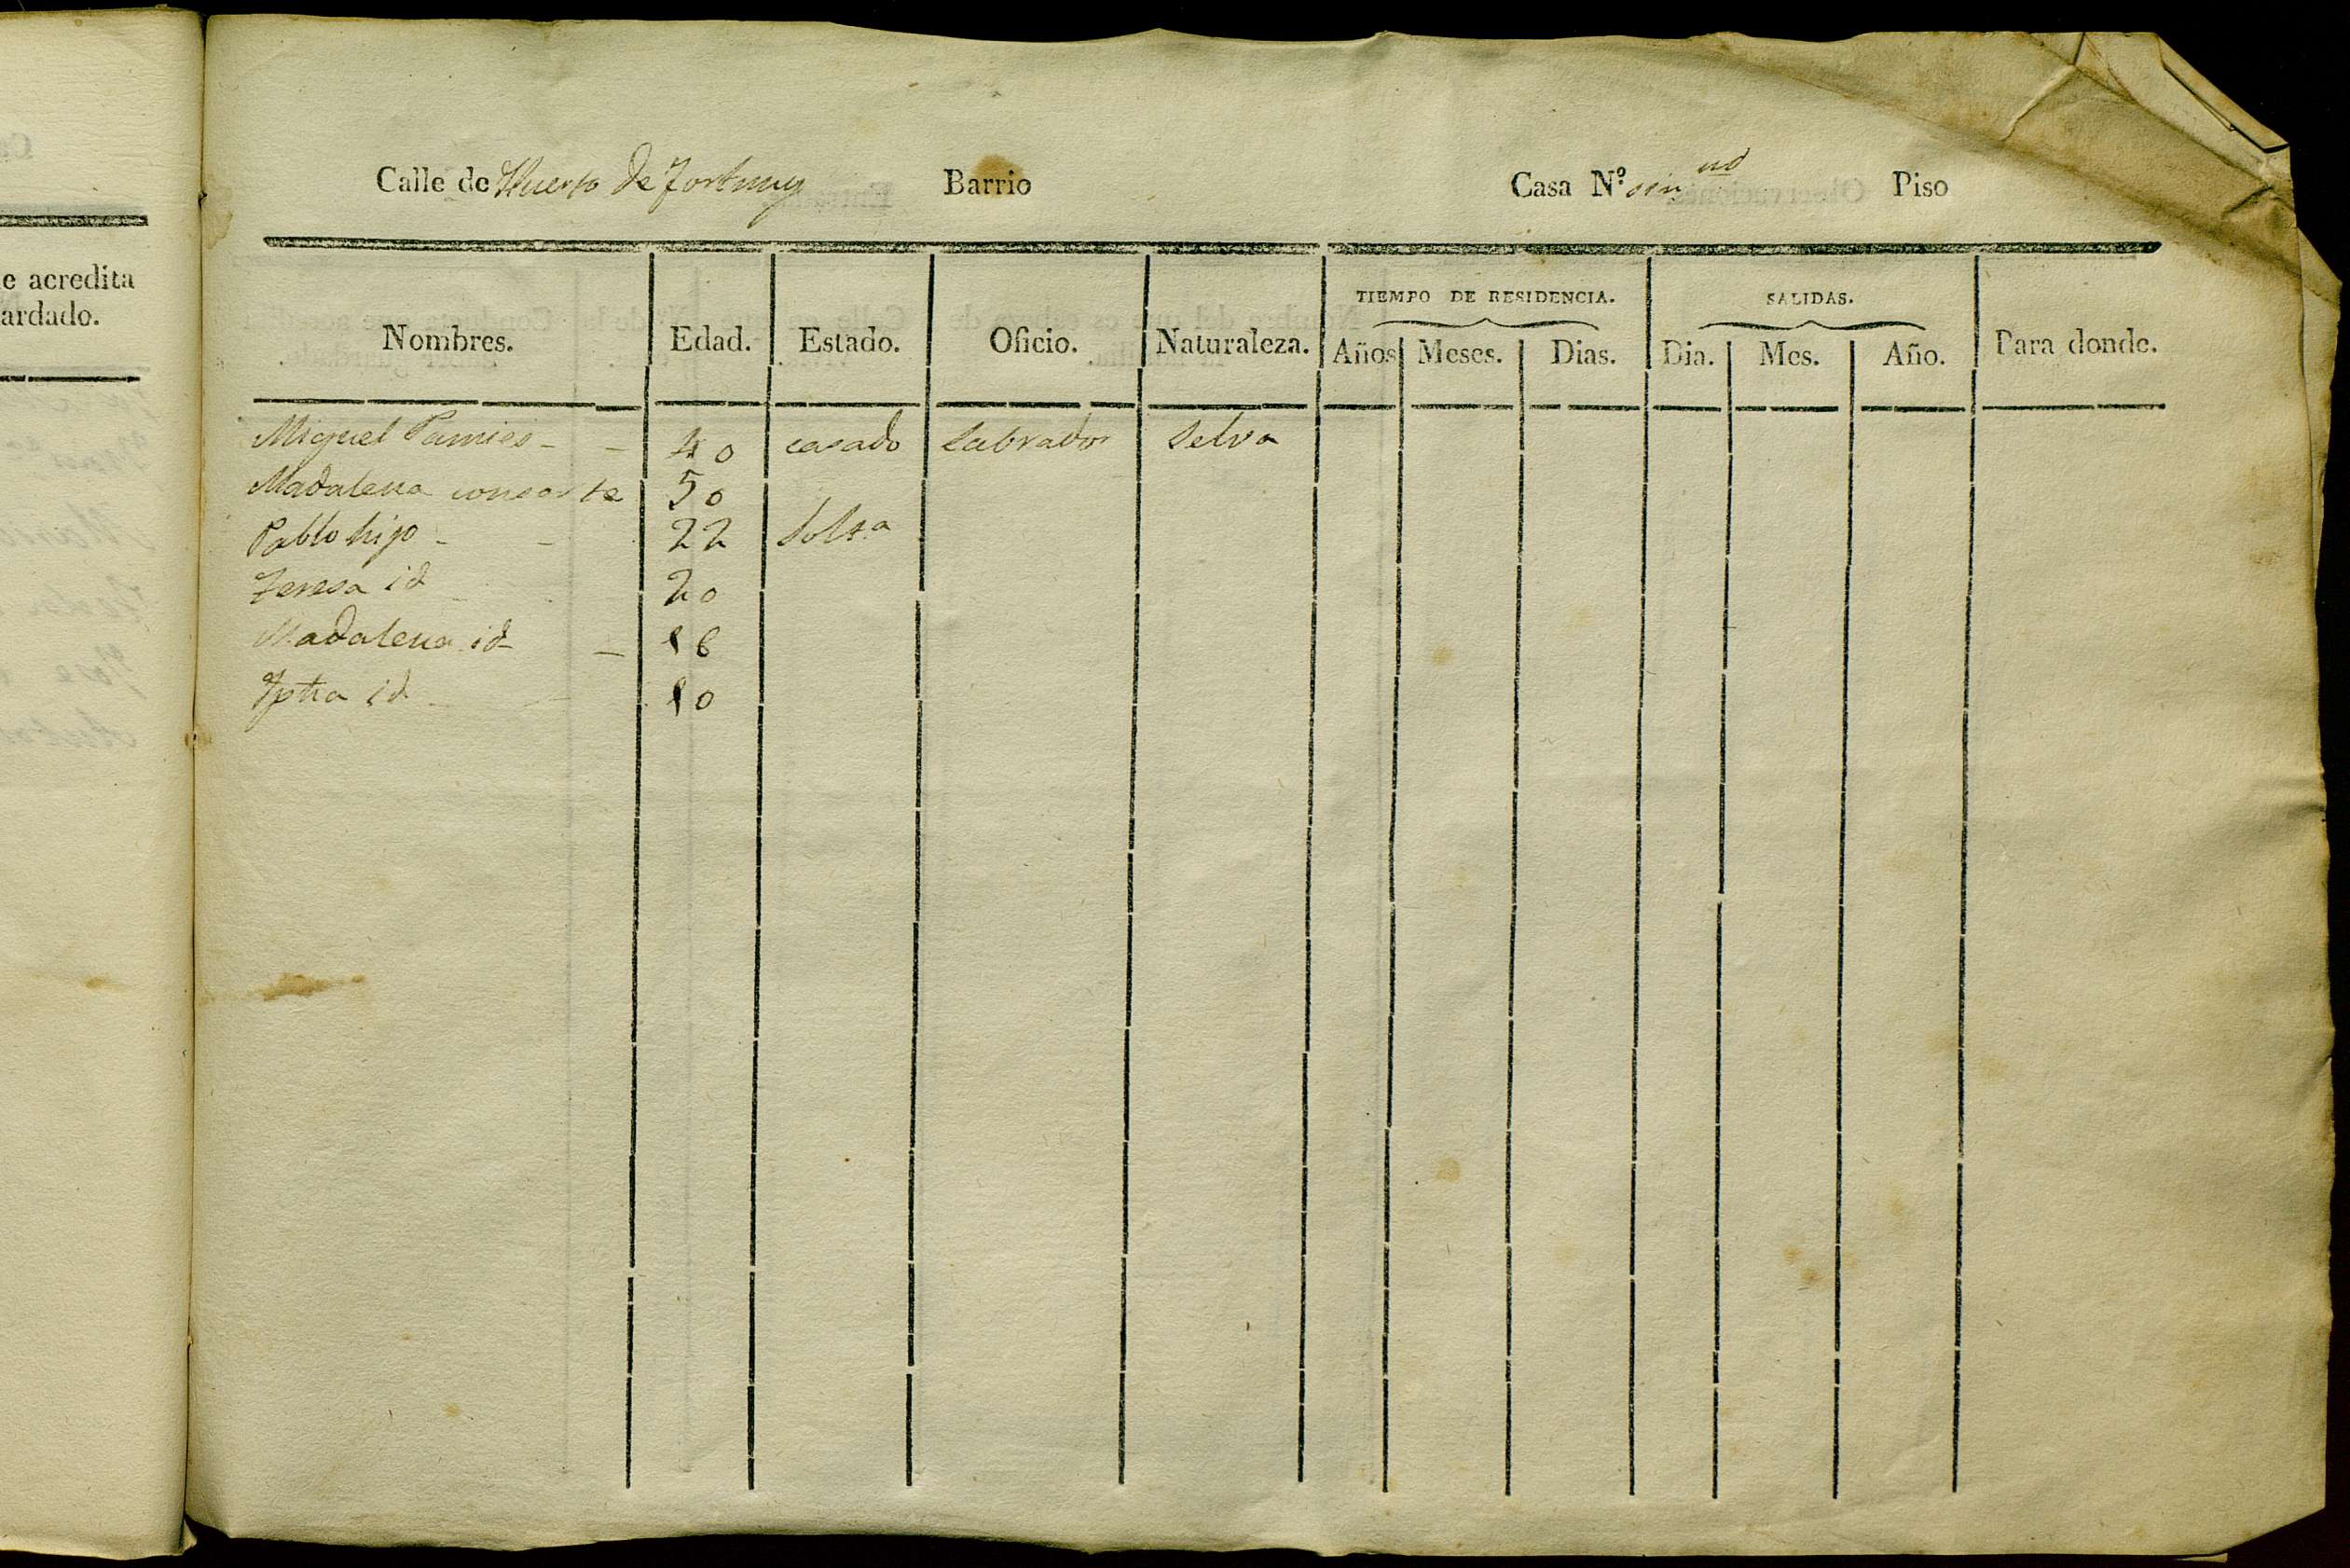 e acredita
ardado.
Calle de Huerto de Fortuny Barrio Casa N.º sin nº Piso
TIEMPO DE RESIDENCIA. SALIDAS.
Nombres. Edad. Estado. Oficio. Naturaleza. Años Meses. Dias. Dia. Mes. Año. Para donde.
Miguel Pamies - - 40 casado Labrador Selva
Madalena consorte 50
Pablo hijo - - 22 Solt.º
Teresa id 20
Madalena id - 16
id 10